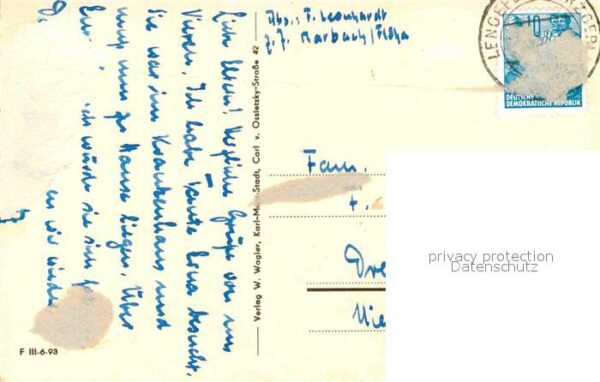 Abs. F. Leonhardt
z. Z. Marbach/Flöha
LENGEFELD
10
DEUTSCHE
DEMOKRATISCHE REPUBLIK
Liebe Eltern! Herzliche Grüße von uns
Vieren. Ich habe Tante Lena besucht.
Sie war im Krankenhaus und
muß nun zu Hause liegen. Über
ich würde sie
wir wieder
Verlag W. Wagler, Karl-Marx-Stadt, Carl v. Ossietzky-Straße 42
F III-6-93
Fam.
+.
Dre
Nie
privacy protection
Datenschutz